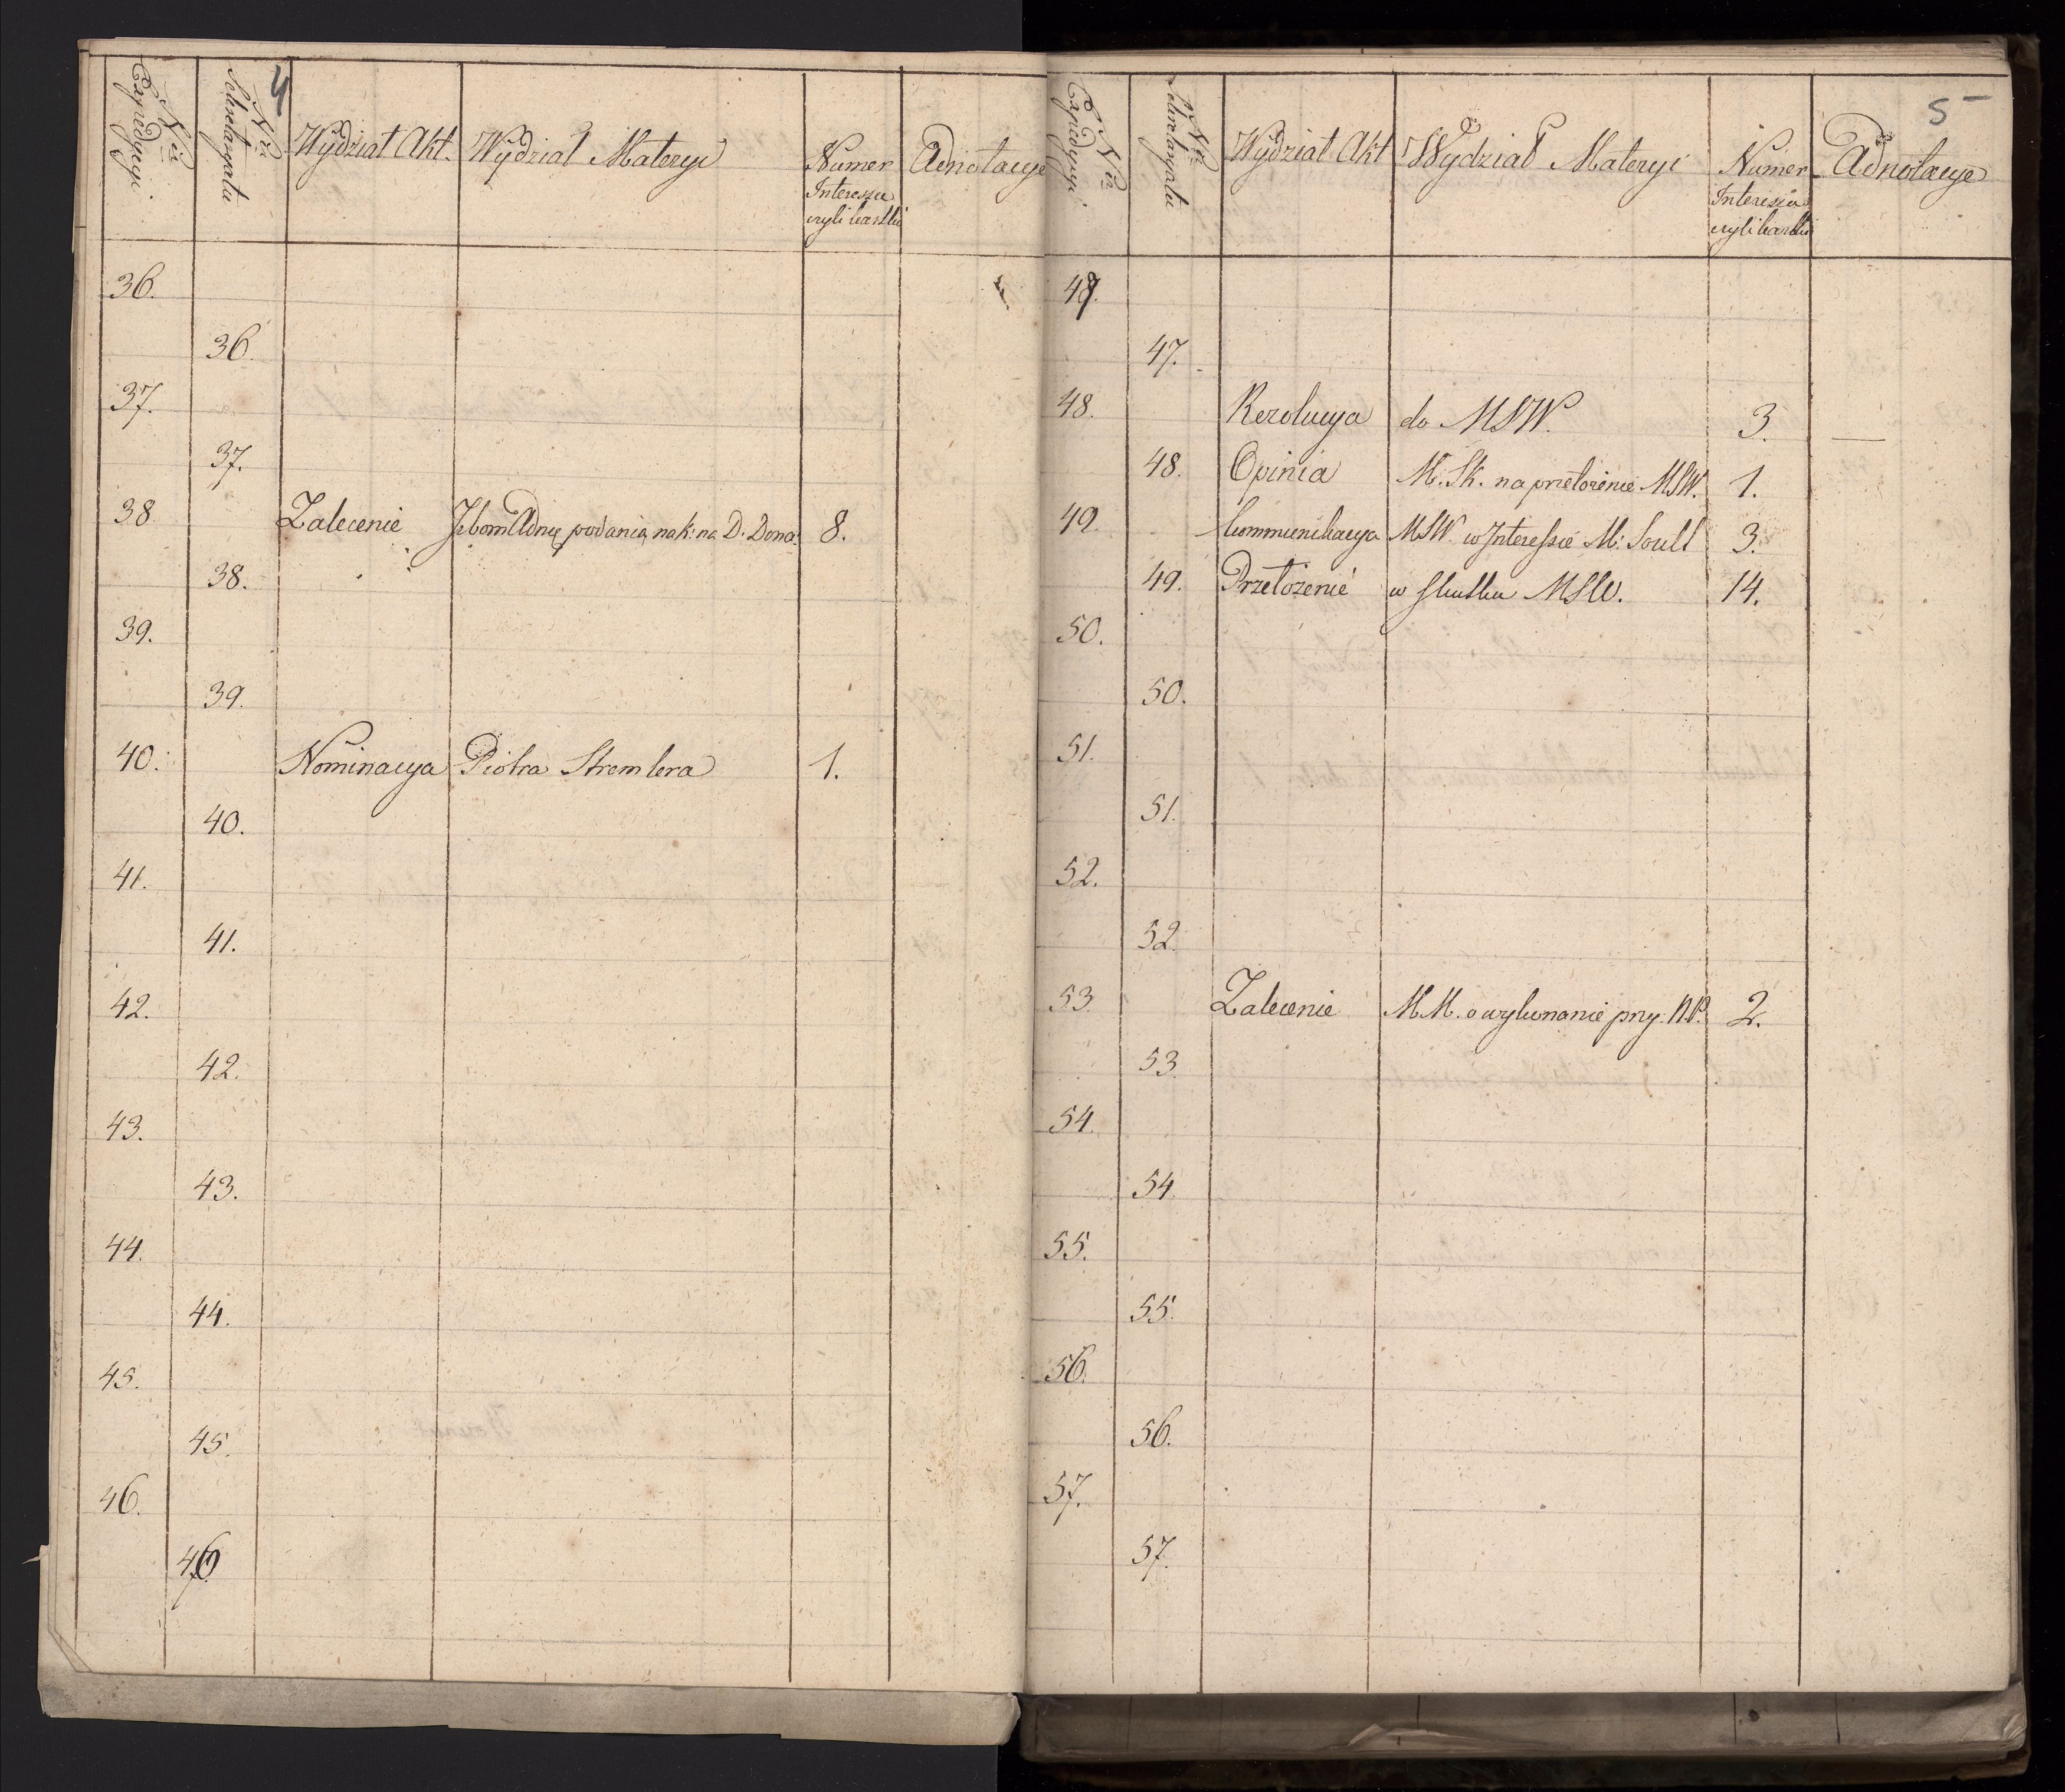 4
Nro Expedycyi
Nro Sekretaryatu
Wydział Akt.
Wydział Materyi
Numer Interessu czyli kartki
Adnotacye
36.
36.
37.
37.
38 Zalecenie Izbom Adney podania na k: na D. Dona: 8.
38.
39.
39.
40. Nominacya Piotra Stremlera 1.
40.
41.
41.
42.
42.
43.
43.
44.
44.
45.
45.
46.
46
5
Nro Expedycyi
Nro Sekretaryatu
Wydział Akt
Wydział Materyi
Numer Interessu czyli kartki
Adnotacye
47.
47.
48. Rezolucya do MSW. 3. —
48. Opinia M. Sk. na przełożenie MSW. 1.
49. Kommunikacya MSW. w Interessie M: Soult 3.
49. Przełożenie w skutku MSW. 14.
50.
50.
51.
51.
52.
52.
53. Zalecenie MM. o wykonanie przy. 2.
53.
54.
54.
55.
55.
56.
56.
57.
57.